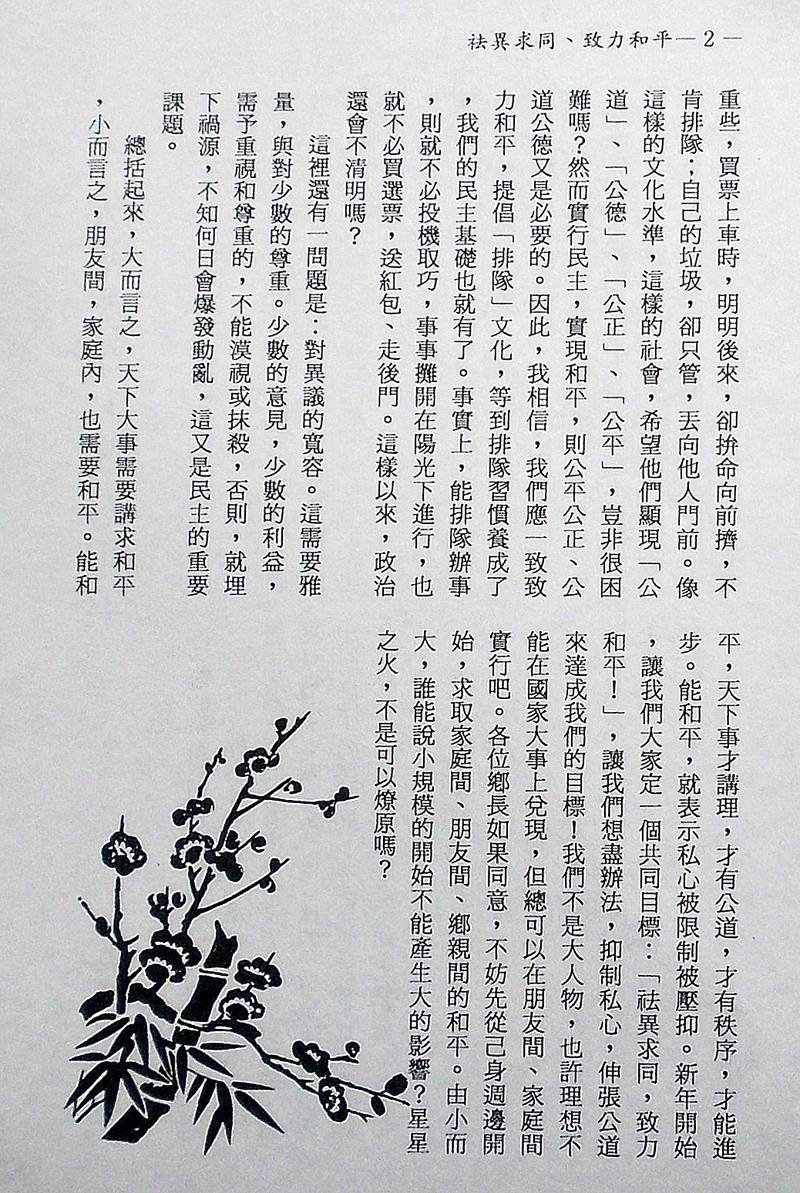 祛異求同、致力和平—2—
重些，買票上車時，明明後來，卻拚命向前擠，不
肯排隊；自己的垃圾，卻只管，丟向他人門前。像
這樣的文化水準，這樣的社會，希望他們顯現「公
道」、「公德」、「公正」、「公平」，豈非很困
難嗎？然而實行民主，實現和平，則公平公正、公
道公德又是必要的。因此，我相信，我們應一致致
力和平，提倡「排隊」文化，等到排隊習慣養成了
，我們的民主基礎也就有了。事實上，能排隊辦事
，則就不必投機取巧，事事攤開在陽光下進行，也
就不必買選票，送紅包、走後門。這樣以來，政治
還會不清明嗎？
這裡還有一問題是：對異議的寬容。這需要雅
量，與對少數的尊重。少數的意見，少數的利益，
需予重視和尊重的，不能漠視或抹殺，否則，就埋
下禍源，不知何日會爆發動亂，這又是民主的重要
課題。
總括起來，大而言之，天下大事需要講求和平
，小而言之，朋友間，家庭內，也需要和平。能和
平，天下事才講理，才有公道，才有秩序，才能進
步。能和平，就表示私心被限制被壓抑。新年開始
，讓我們大家定一個共同目標：「祛異求同，致力
和平！」，讓我們想盡辦法，抑制私心，伸張公道
來達成我們的目標！我們不是大人物，也許理想不
能在國家大事上兌現，但總可以在朋友間、家庭間
實行吧。各位鄉長如果同意，不妨先從己身週邊開
始，求取家庭間、朋友間、鄉親間的和平。由小而
大，誰能說小規模的開始不能產生大的影響？星星
之火，不是可以燎原嗎？